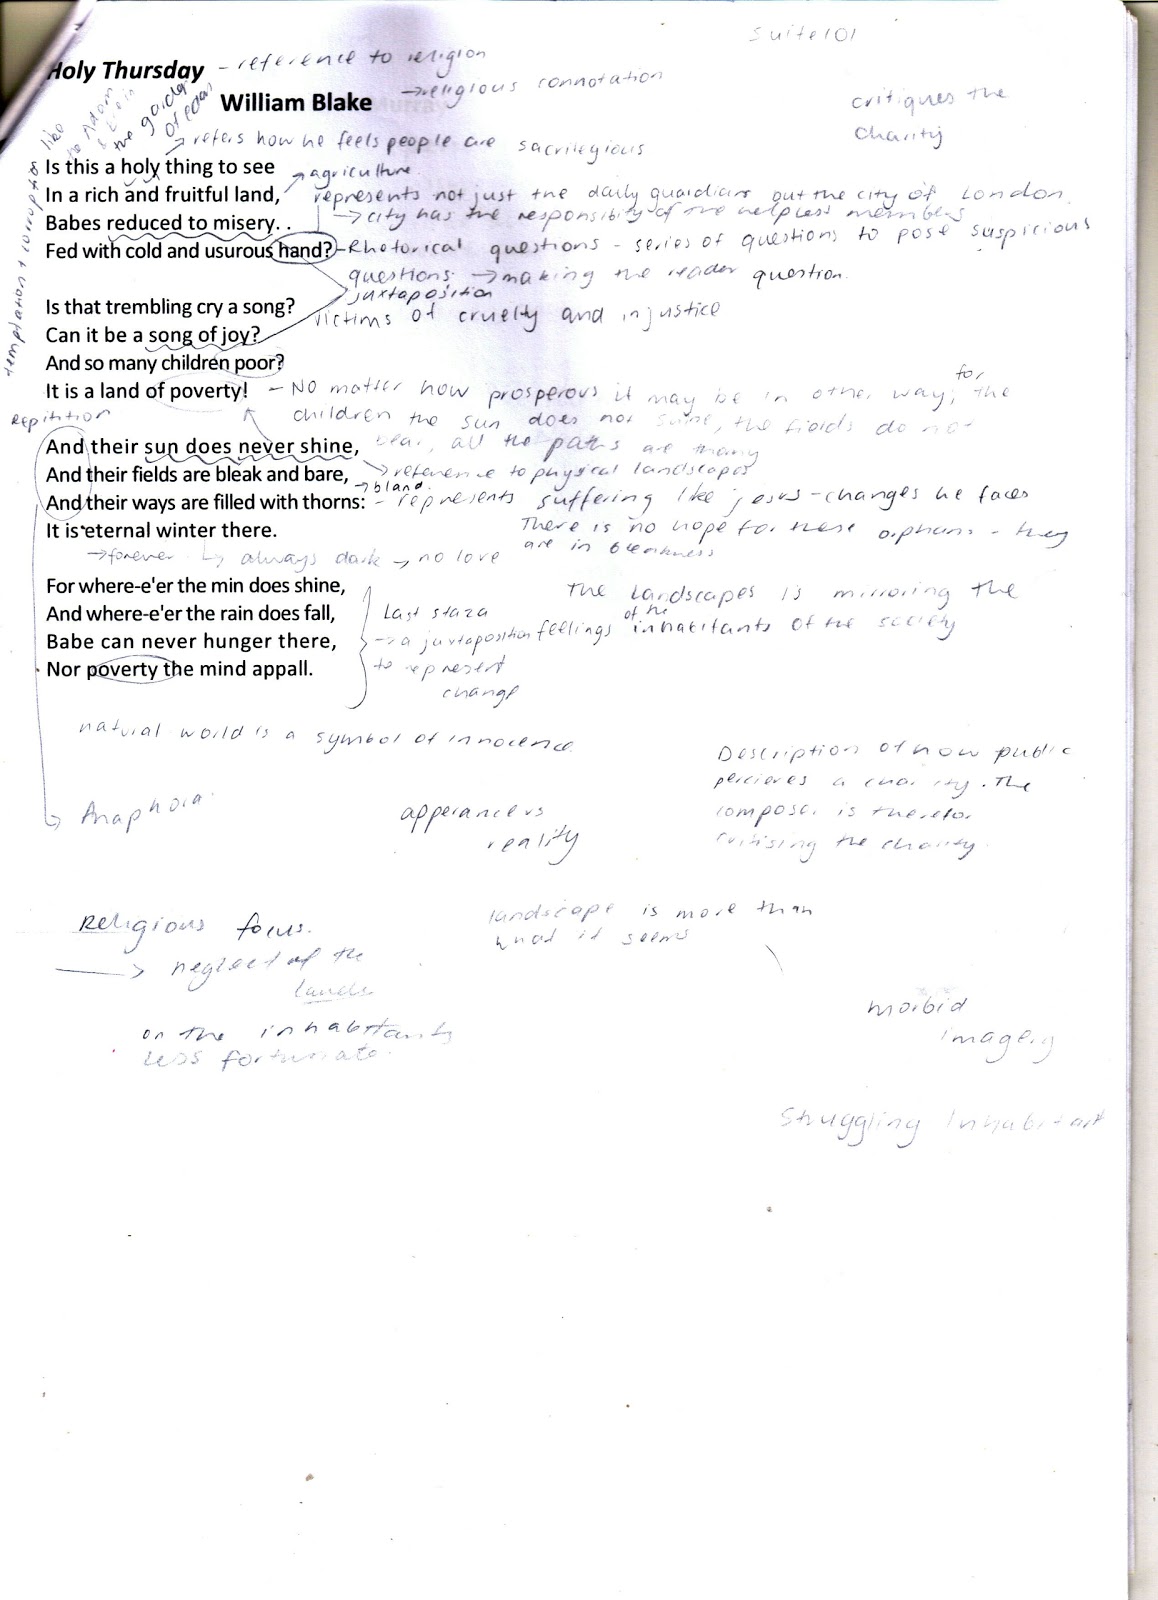 suite101
Holy Thursday - reference to religion
William Blake → religious connotation
critiques the
charity
temptation + corruption like
Adam
the garden
of eden
→ refers how he feels people are sacrilegious
Is this a holy thing to see
→ agriculture
In a rich and fruitful land,
represents not just the daily guardians but the city of London
Babes reduced to misery. .
→ city has the responsibility of the helpless members
Fed with cold and usurous hand?
- Rhetorical questions - series of questions to pose suspicious
questions → making the reader question.
juxtaposition
Is that trembling cry a song?
victims of cruelty and injustice
Can it be a song of joy?
And so many children poor?
It is a land of poverty!
- No matter how prosperous it may be in other way, for the
children the sun does not shine, the fields do not
bear, all the paths are thorny
Repitition
And their sun does never shine,
And their fields are bleak and bare,
→ reference to physical landscapes
→ bland.
And their ways are filled with thorns:
- represents suffering like jesus - changes he faces
It is eternal winter there.
There is no hope for these orphans - they
are in bleakness
→ forever ↳ always dark → no love
For where-e'er the min does shine,
And where-e'er the rain does fall,
Babe can never hunger there,
Nor poverty the mind appall.
Last staza
→ a juxtaposition
to represent
change
The landscapes is mirroring the
feelings of the inhabitants of the society
natural world is a symbol of innocence
Anaphora.
apperance vs
reality
Description of how public
percieves a charity. The
composer is therefor
critising the charity.
Religious focus.
→ neglect of the
lands
on the inhabitants
less fortunate.
landscape is more than
what it seems
morbid
imagery
Struggling Inhabitant